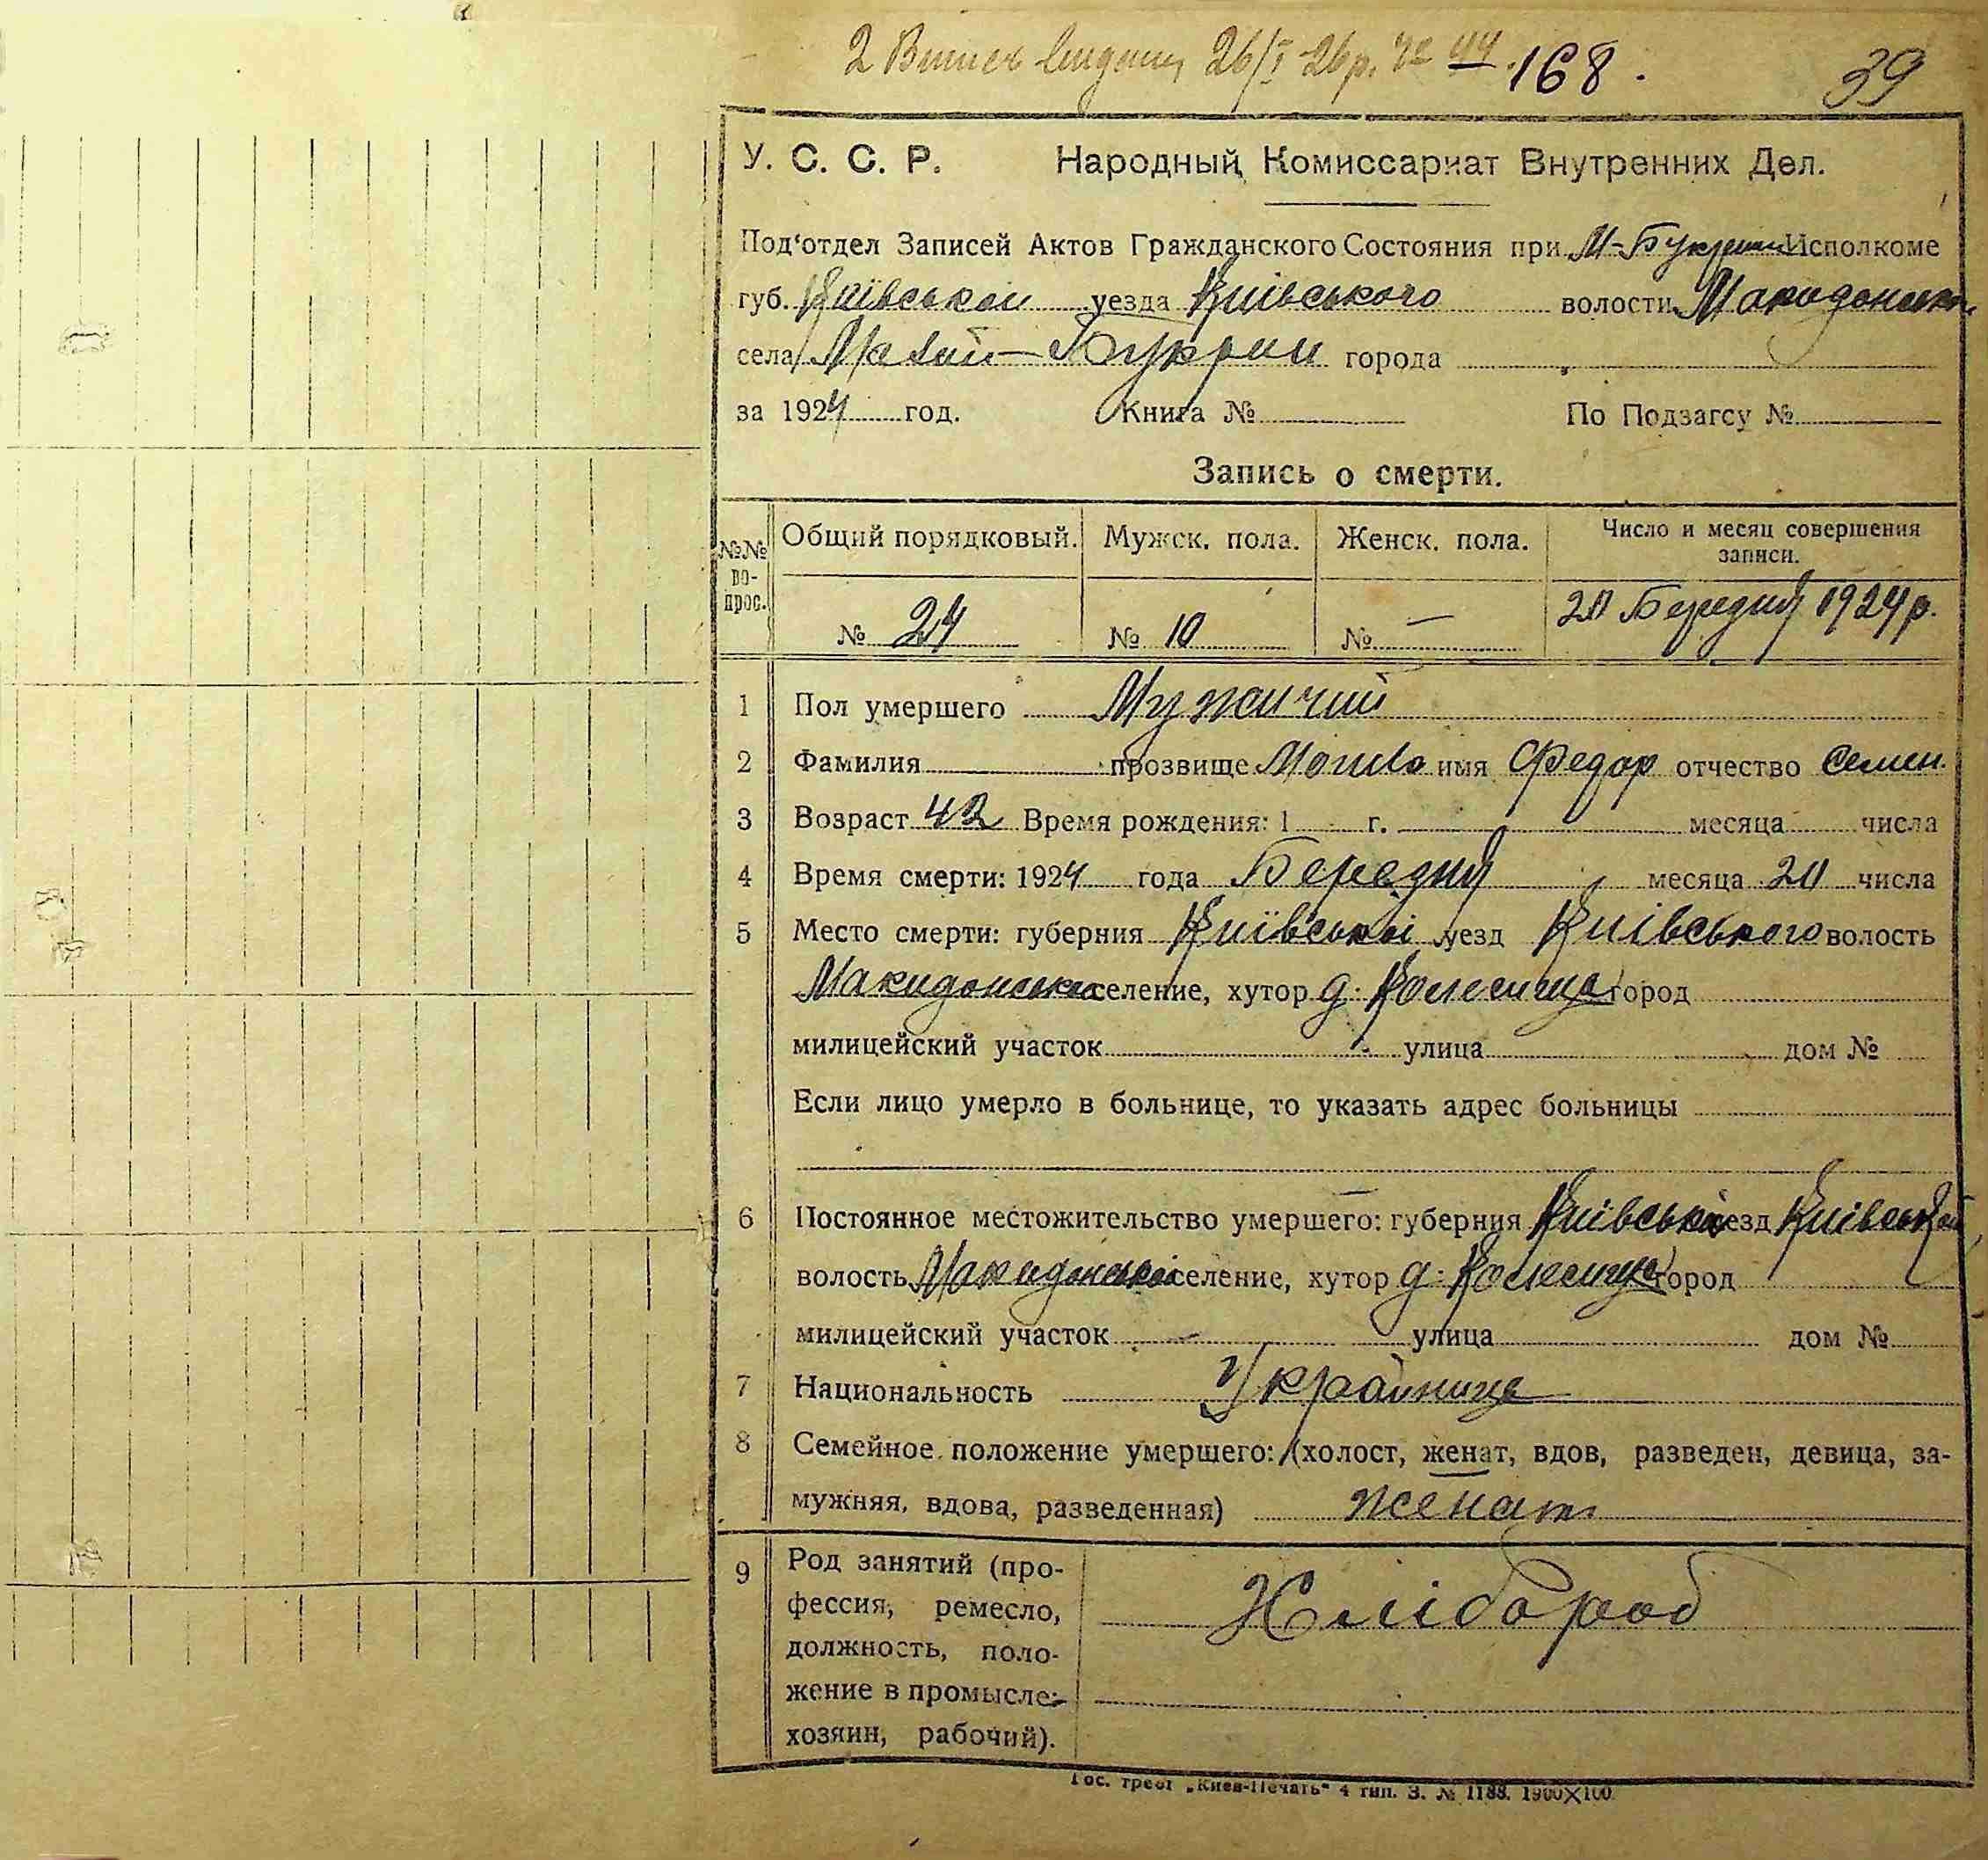 2 Витяг видан, 26/I 26 р. № 44. 168. 39
У. С. С. Р. Народный Комиссариат Внутренних Дел.
Под'отдел Записей Актов Гражданского Состояния при М-Букрин Исполкоме
губ. Київськои уезда Київського волости Македонськ.
села Малий-Букрин города
за 1924 год. Книга № По Подзагсу №
Запись о смерти.
№№ во- прос. Общий порядковый. Мужск. пола. Женск. пола. Число и месяц совершения записи.
№ 24 № 10 № — 20 Березня 1924 р.
1 Пол умершего Мужичий
2 Фамилия прозвище имя Федор отчество Семен.
3 Возраст 42 Время рождения: 1 г. месяца числа
4 Время смерти: 1924 года Березня месяца 20 числа
5 Место смерти: губерния Київськоі уезд Київського волость
Македонська селение, хутор д. город
милицейский участок улица дом №
Если лицо умерло в больнице, то указать адрес больницы
6 Постоянное местожительство умершего: губерния Київська уезд Київськой
волость Македонськоі селение, хутор д. город
милицейский участок - улица дом №
7 Национальность Українця
8 Семейное положение умершего: (холост, женат, вдов, разведен, девица, за-
мужняя, вдова, разведенная) женат
9 Род занятий (про-
фессия, ремесло, Хлібороб
должность, поло-
жение в промысле:
хозяин, рабочий).
Гос. трест „Киев-Печать" 4 тип. З. № 1188. 1900×100.